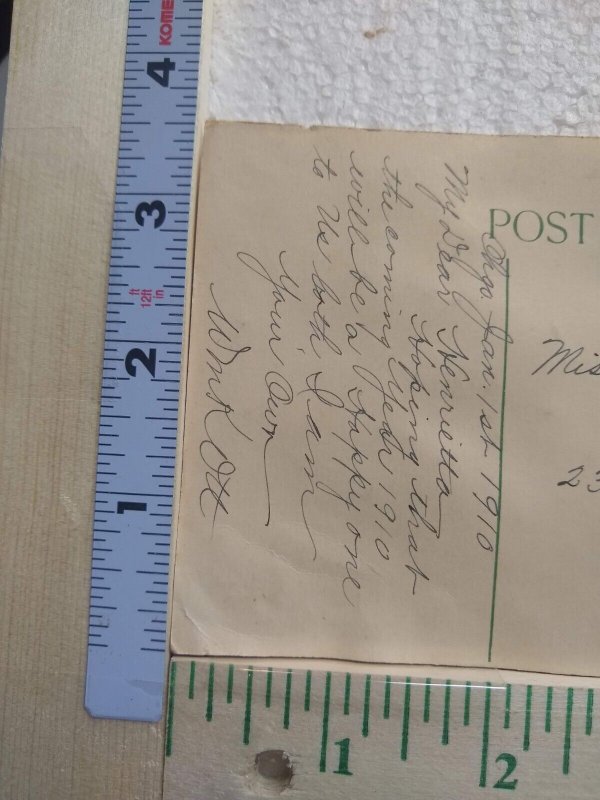 Chgo Jan. 1st 1910
My Dear Henrietta
Hoping that
the coming Year 1910
will be a Happy one
to Us both I am
Your Own
Wm K Ott
POST
Mis
23
KOME
4
3
ft
12ft
in
2
1
1
2